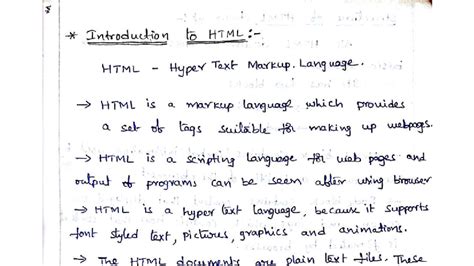 * Introduction to HTML:-
HTML - Hyper Text Markup. Language.
→ HTML is a markup language which provides
a set of tags suitable for making up webpages.
→ HTML is a scripting language for web pages and
output of programs can be seen after using browser
→ HTML is a hyper text language, because it supports
font styled text, pictures, graphics and animations.
→ The HTML documents are plain text files. These